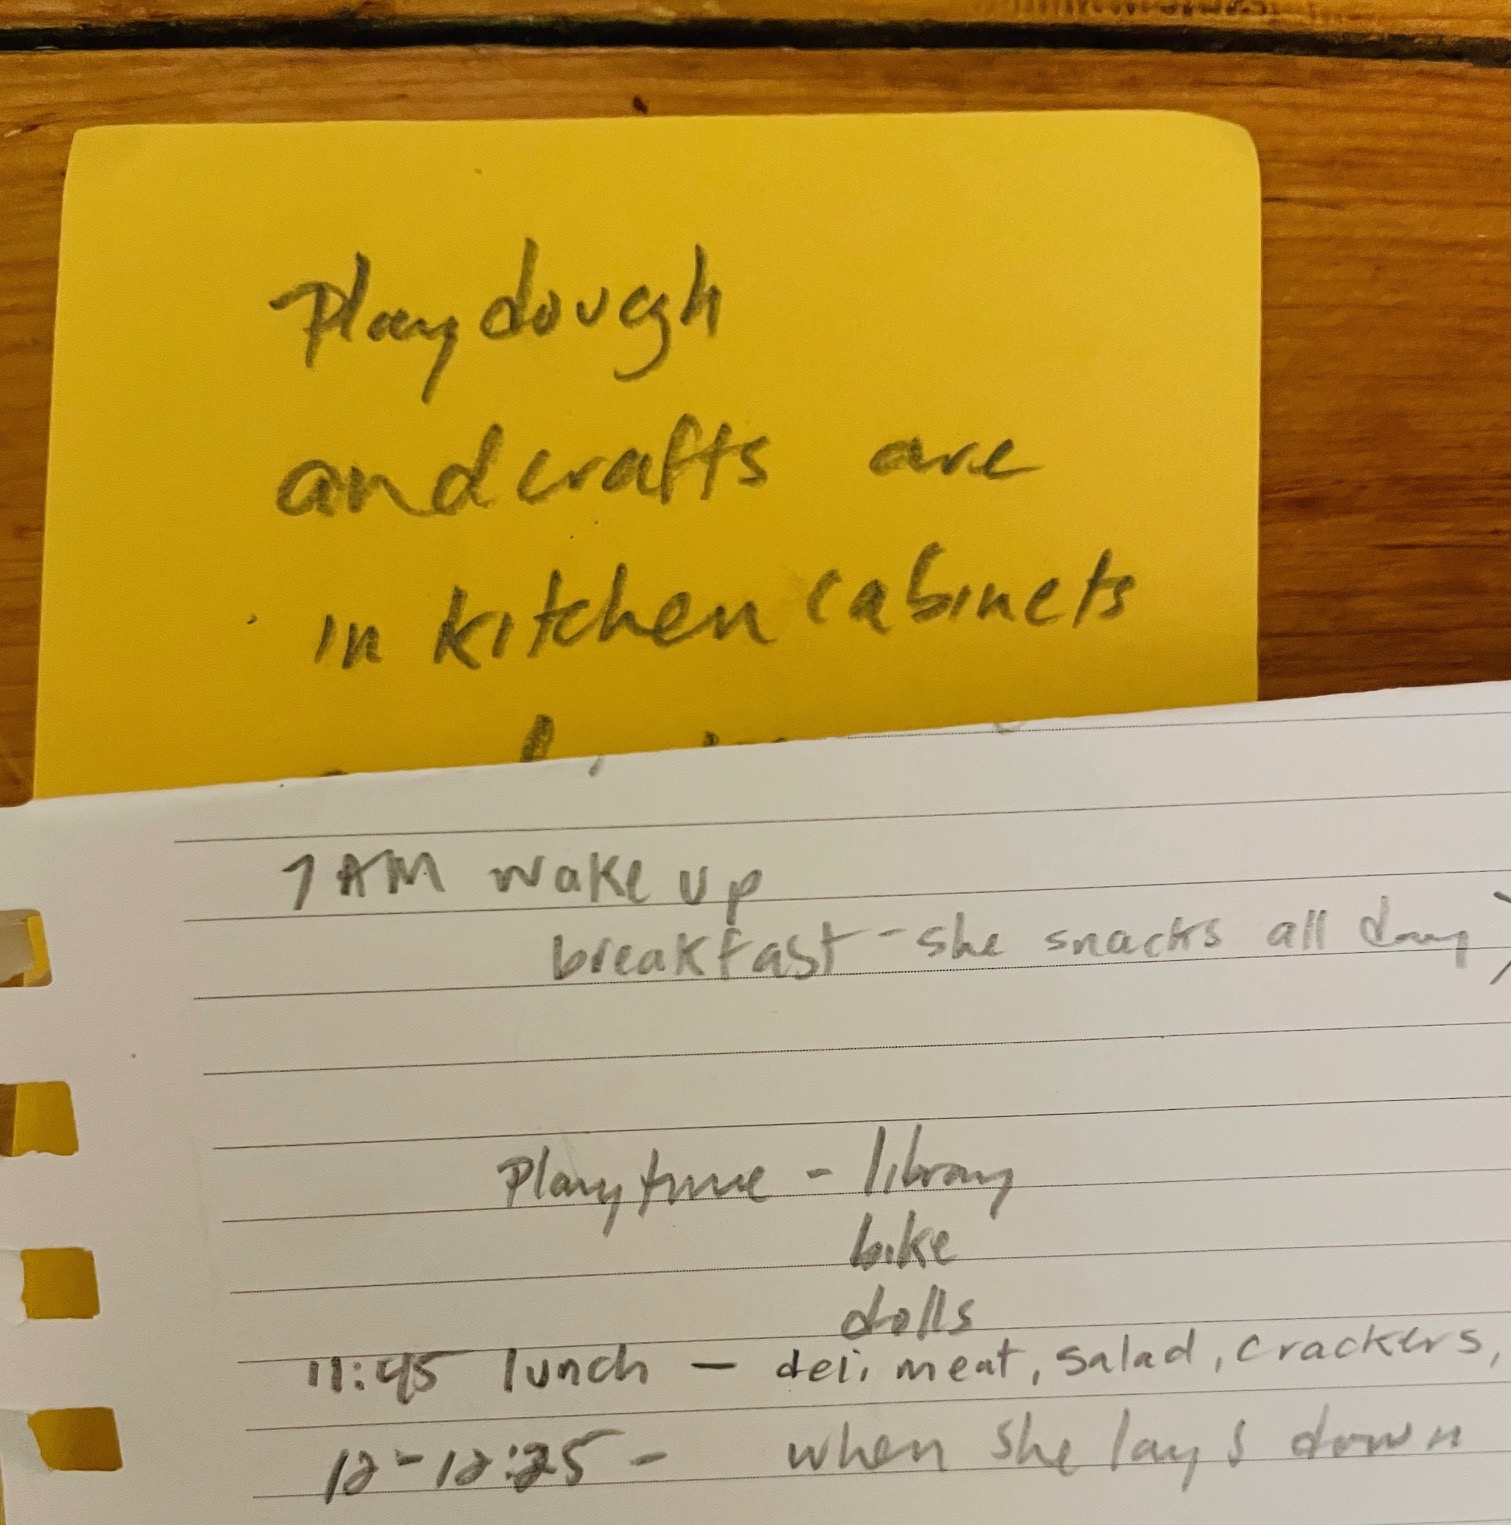 Playdough
and crafts are
in kitchen cabinets
7 AM wake up
breakfast - she snacks all day
Playtime - library
bike
dolls
11:45 lunch — deli meat, salad, crackers,
12-12:25 - when she lays down